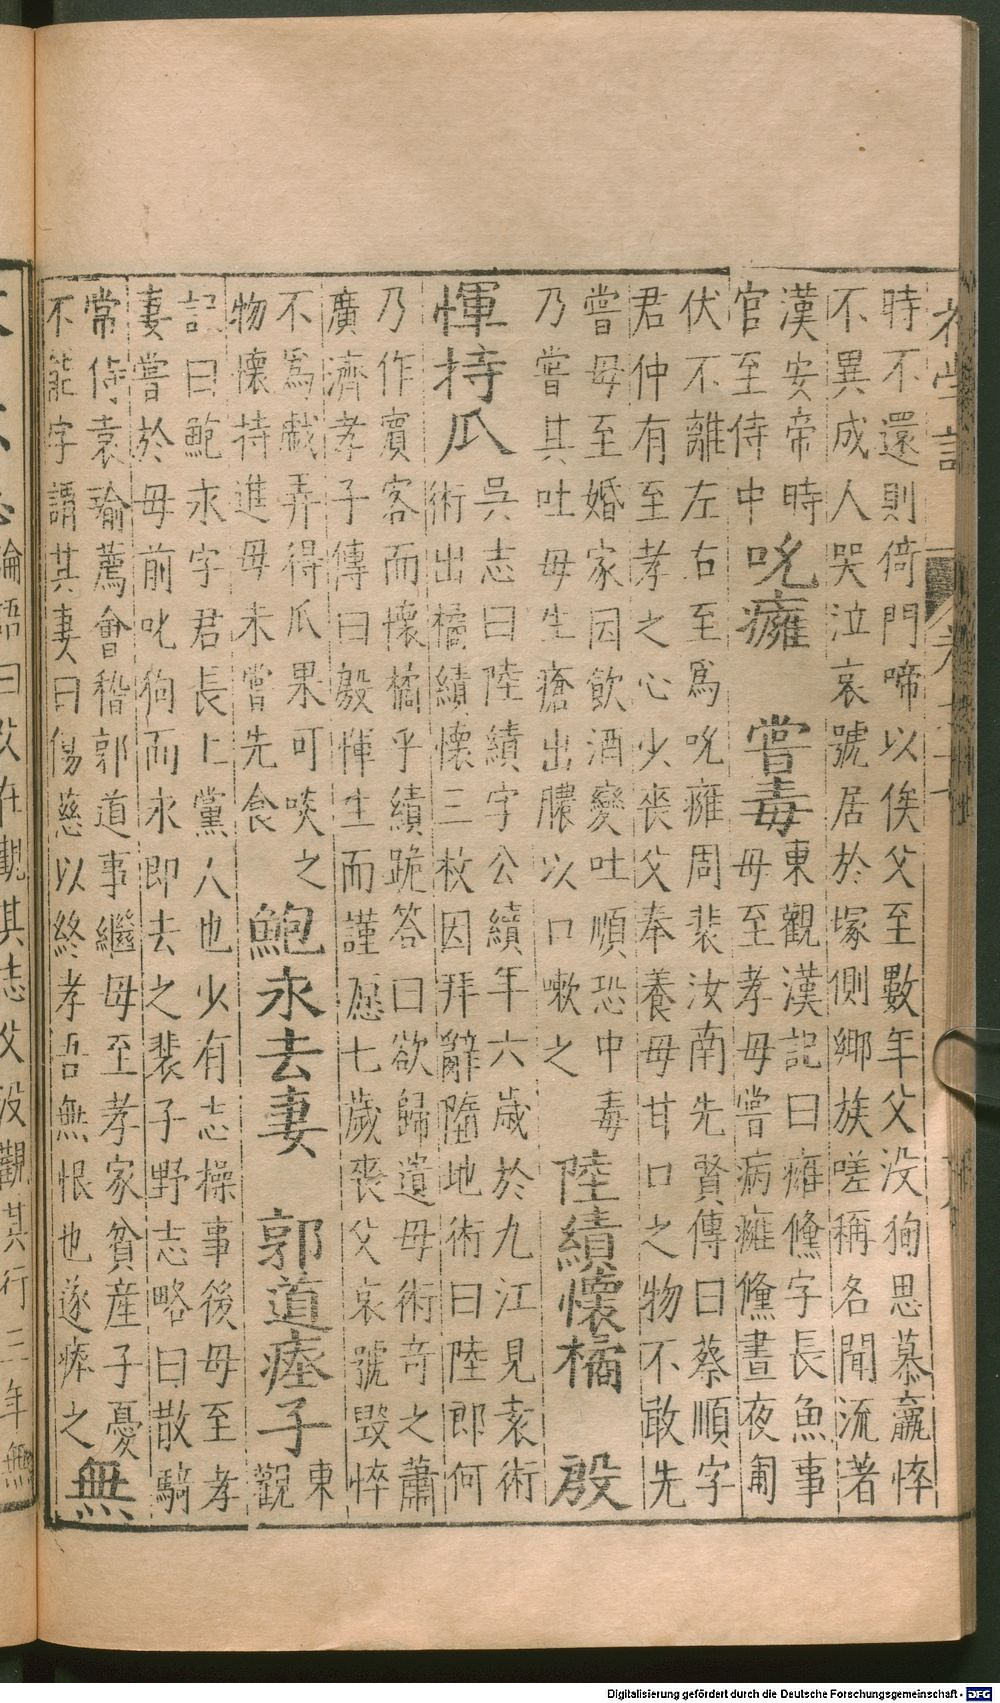 初學記
卷十七
時不還則倚門啼以俟父至數年父没狥思慕羸悴
不異成人哭泣哀號居於塚側鄉族嗟稱名聞流著
漢安帝時
官至侍中
吮癰 嘗毒
東觀漢記曰癰儵字長魚事
母至孝母嘗病癰儵晝夜匍
伏不離左右至爲吮癰周裴汝南先賢傳曰蔡順字
君仲有至孝之心少喪父奉養母甘口之物不敢先
嘗母至婚家因飲酒變吐順恐中毒
乃嘗其吐母生瘡出膿以口嗽之
陸績懷橘 殷
惲持瓜
吳志曰陸績字公績年六歲於九江見袁術
術出橘績懷三枚因拜辭墮地術曰陸郎何
乃作賓客而懷橘乎績跪答曰欲歸遺母術奇之蕭
廣濟孝子傳曰殷惲生而謹愿七歲喪父哀號毀悴
不爲戲弄得瓜果可啖之
物懷持進母未嘗先食
鮑永去妻 郭道瘞子
東
觀
記曰鮑永字君長上黨人也少有志操事後母至孝
妻嘗於母前叱狗而永即去之裴子野志略曰散騎
常侍袁瑜薦會稽郭道事繼母至孝家貧産子憂
不能字謂其妻曰傷慈以終孝吾無恨也遂瘞之
無
論語曰父在觀其志父没觀其行三年無
Digitalisierung gefördert durch die Deutsche Forschungsgemeinschaft - DFG